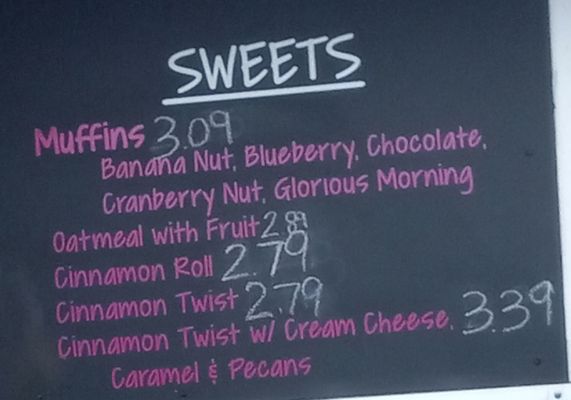 SWEETS
Muffins 3.09
Banana Nut, Blueberry, Chocolate,
Cranberry Nut, Glorious Morning
Oatmeal with Fruit 2.89
Cinnamon Roll 2.79
Cinnamon Twist 2.79
Cinnamon Twist w/ Cream Cheese, 3.39
Caramel & Pecans